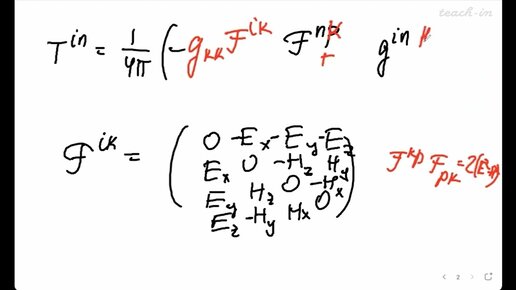 teach-in
T^{in} = \frac{1}{4π} ( -g_{kk} F^{ik} F^{np} g^{in}
F^{ik} = ( 0 -E_x -E_y -E_z
E_x 0 -H_z H_y
E_y H_z 0 -H_x
E_z -H_y H_x 0 )
F^{kp} F_{pk} = 2(E^2
2